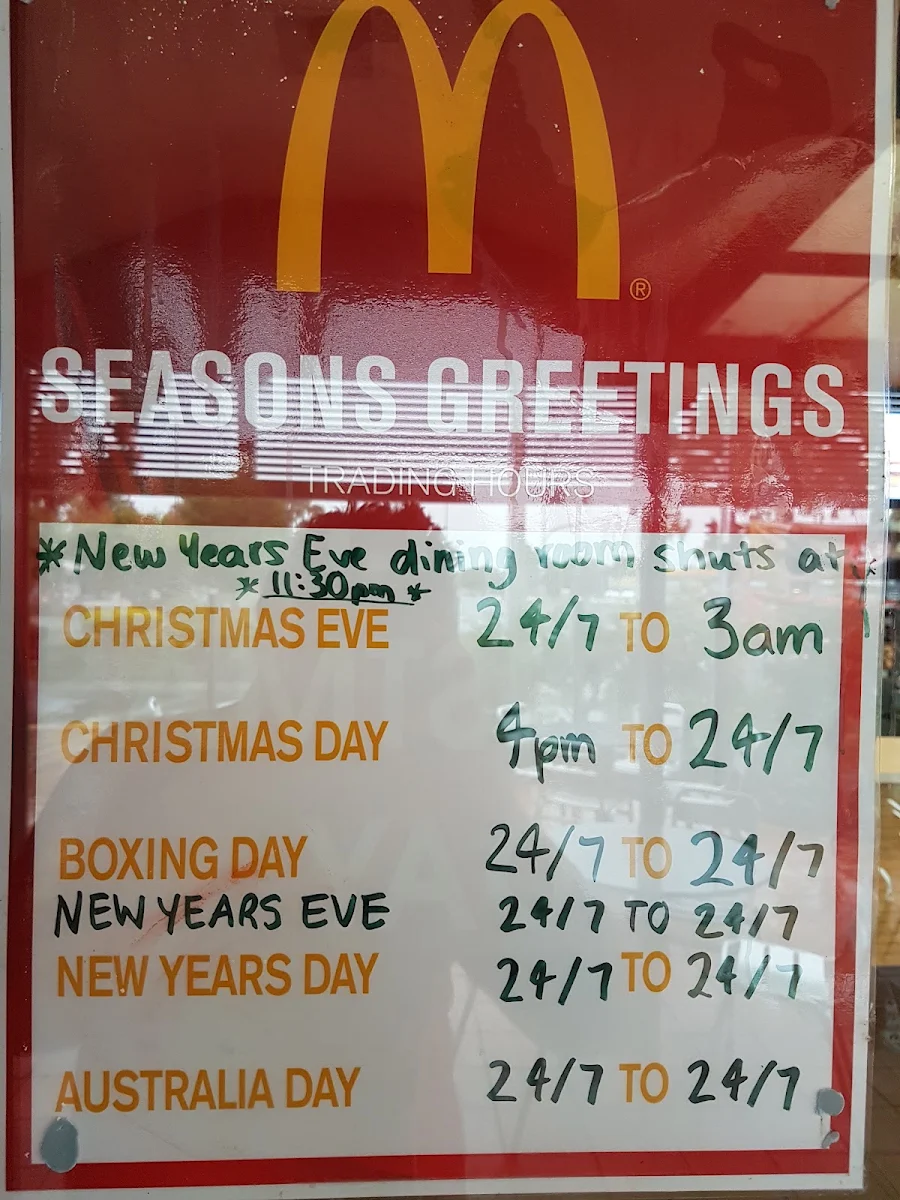 ®
SEASONS GREETINGS
TRADING HOURS
* New Years Eve dining room shuts at *
* 11:30pm *
CHRISTMAS EVE 24/7 TO 3am
CHRISTMAS DAY 4pm TO 24/7
BOXING DAY 24/7 TO 24/7
NEW YEARS EVE 24/7 TO 24/7
NEW YEARS DAY 24/7 TO 24/7
AUSTRALIA DAY 24/7 TO 24/7